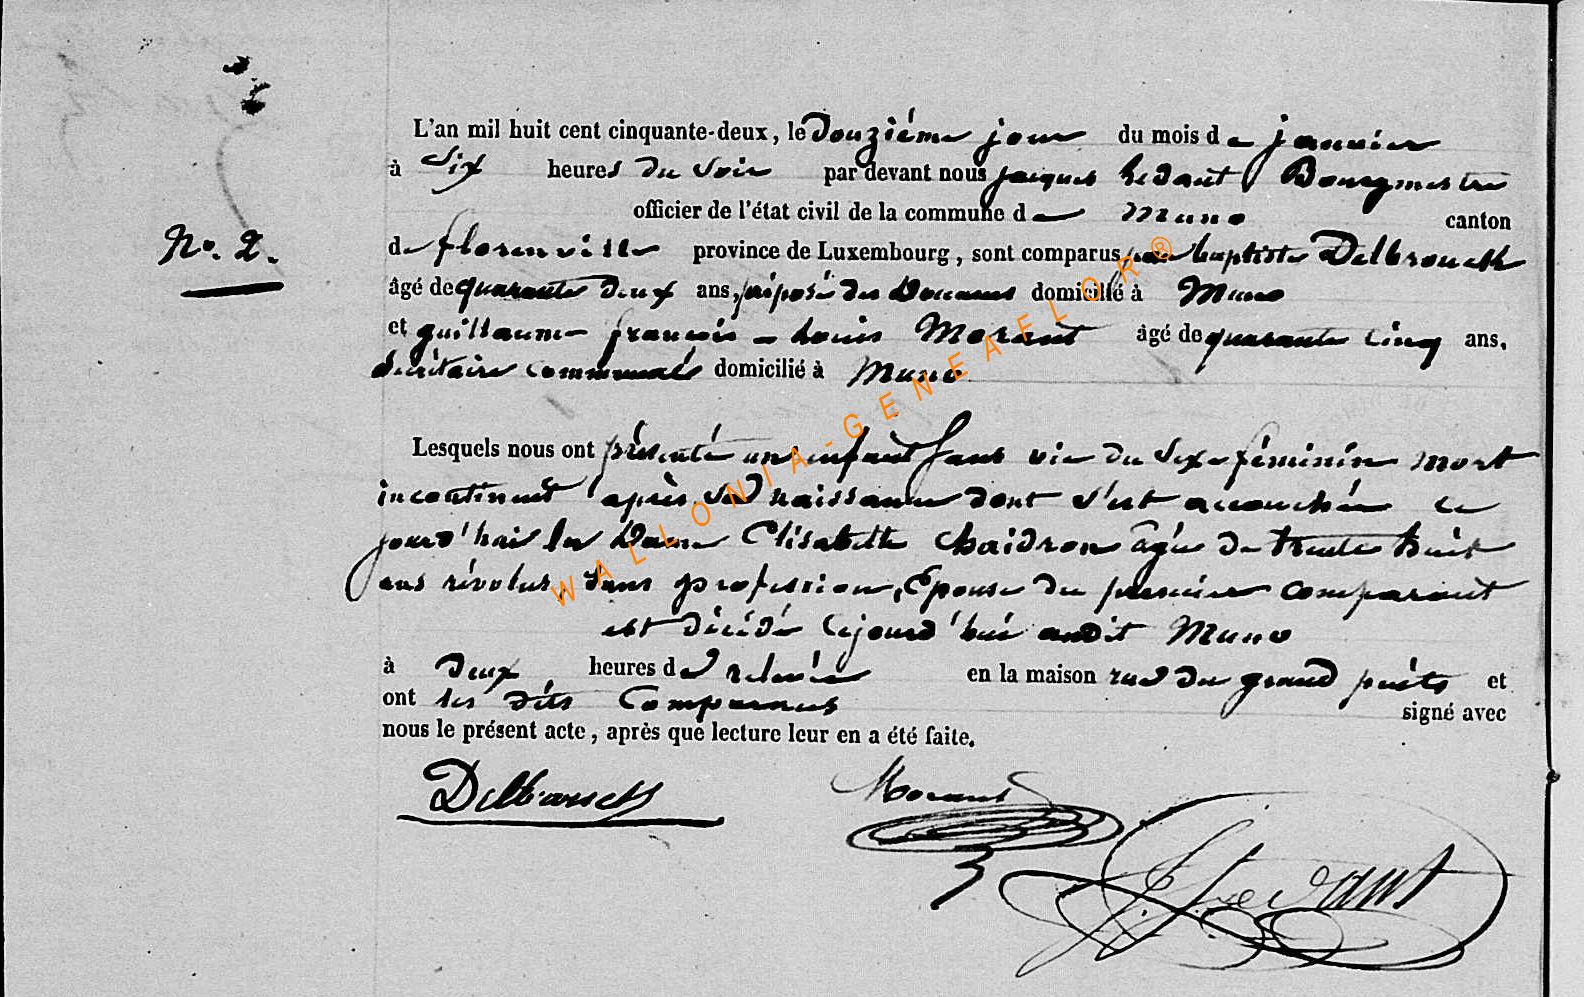 L'an mil huit cent cinquante-deux, le Douziéme jour du mois de janvier
à Six heures du soir par devant nous jacques Ledant Bourgmestre
officier de l'état civil de la commune de Muno canton
No. 2.
de florenville province de Luxembourg, sont comparus baptiste Delbrouck
âgé de quarante deux ans, préposé des Douanes domicilié à Muno
et guillaume françois - Louis Morant âgé de quarante cinq ans,
Secrétaire Communal domicilié à Muno
Lesquels nous ont présenté un enfant sans vie du sexe féminin mort
incontinent après sa naissance dont s'est accouchée ce
jourd'hui la Dame Elisabeth Chaidron âgée de trente huit
ans révolus, sans profession, Epouse du premier comparant
est décédé Cejourd'hui audit Muno
à deux heures de relevée en la maison rue du grand puits et
ont les dits Comparants signé avec
nous le présent acte, après que lecture leur en a été faite.
Delbrouck Morant
J. Ledant
WALLONIA-GENEAELOR®